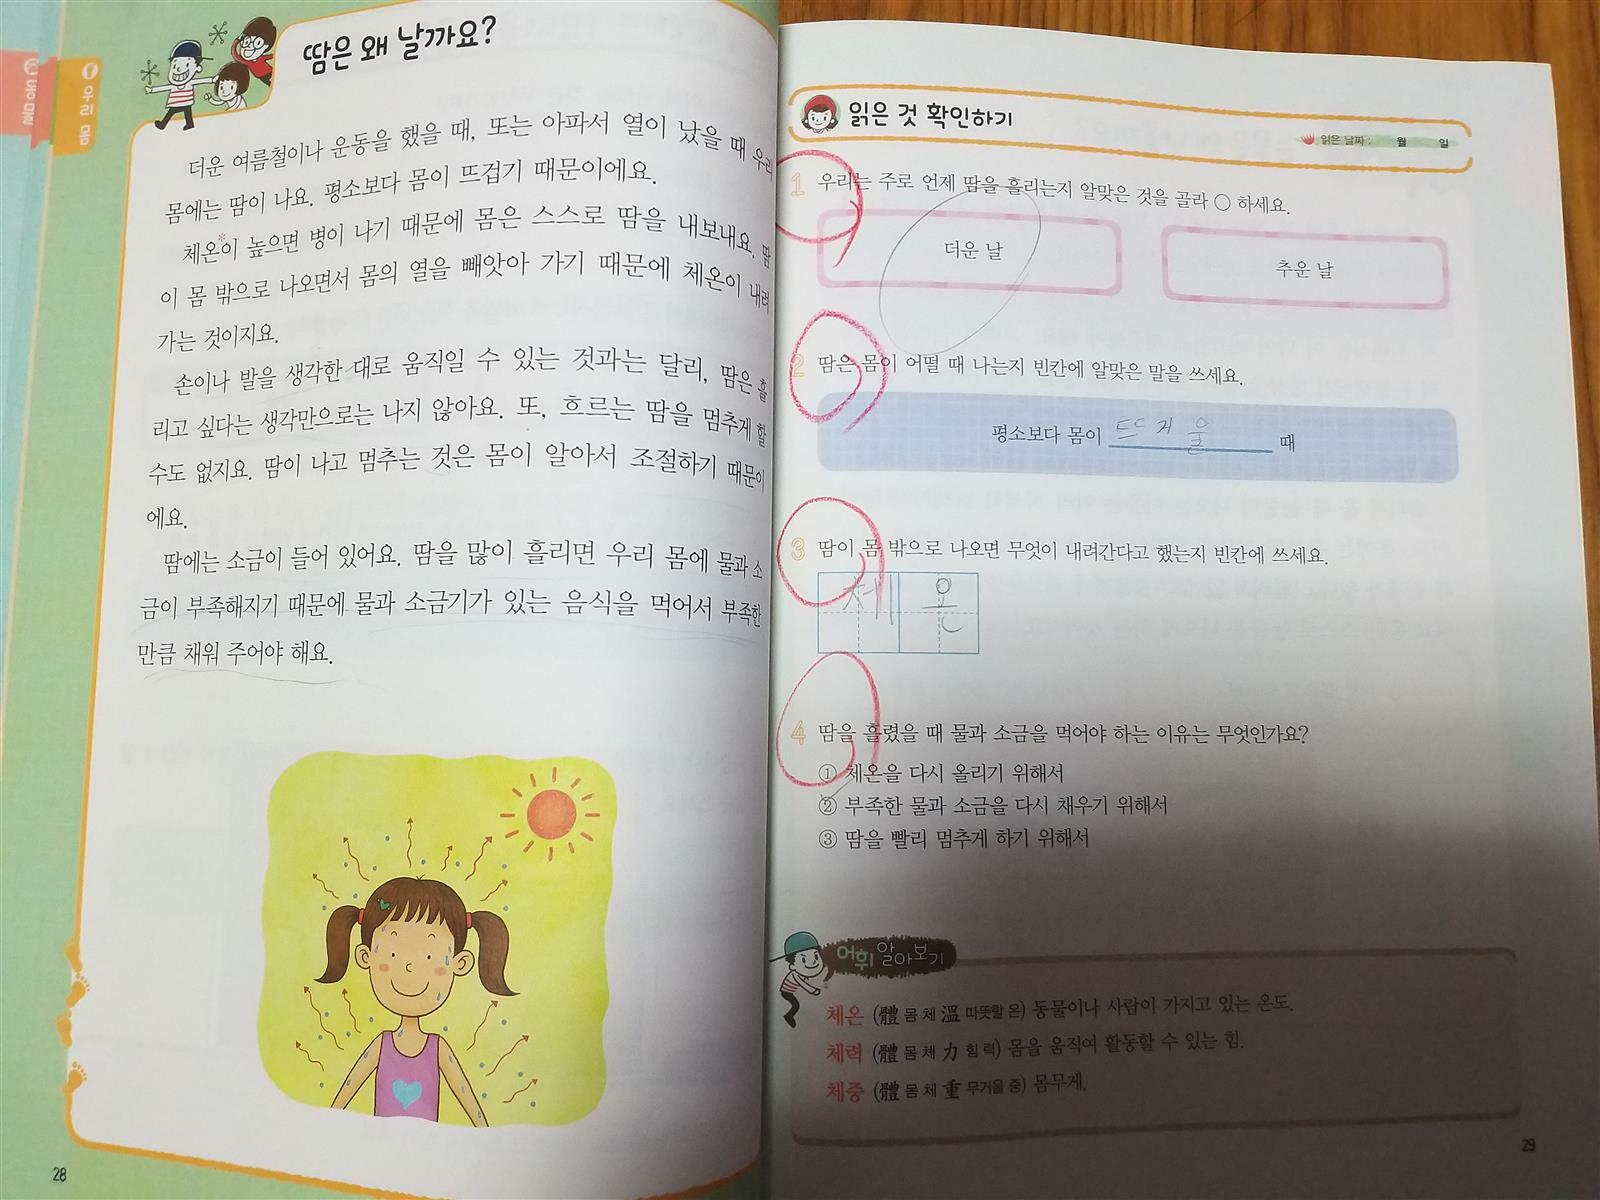 동물
우리 몸
땀은 왜 날까요?
더운 여름철이나 운동을 했을 때, 또는 아파서 열이 났을 때 우리
몸에는 땀이 나요. 평소보다 몸이 뜨겁기 때문이에요.
체온*이 높으면 병이 나기 때문에 몸은 스스로 땀을 내보내요. 땀
이 몸 밖으로 나오면서 몸의 열을 빼앗아 가기 때문에 체온이 내려
가는 것이지요.
손이나 발을 생각한 대로 움직일 수 있는 것과는 달리, 땀은 흘
리고 싶다는 생각만으로는 나지 않아요. 또, 흐르는 땀을 멈추게 할
수도 없지요. 땀이 나고 멈추는 것은 몸이 알아서 조절하기 때문이
에요.
땀에는 소금이 들어 있어요. 땀을 많이 흘리면 우리 몸에 물과 소
금이 부족해지기 때문에 물과 소금기가 있는 음식을 먹어서 부족한
만큼 채워 주어야 해요.
28
읽은 것 확인하기
읽은 날짜 : 월 일
1 우리는 주로 언제 땀을 흘리는지 알맞은 것을 골라 ○ 하세요.
더운 날 추운 날
2 땀은 몸이 어떨 때 나는지 빈칸에 알맞은 말을 쓰세요.
평소보다 몸이 뜨거울 때
3 땀이 몸 밖으로 나오면 무엇이 내려간다고 했는지 빈칸에 쓰세요.
체온
4 땀을 흘렸을 때 물과 소금을 먹어야 하는 이유는 무엇인가요?
① 체온을 다시 올리기 위해서
② 부족한 물과 소금을 다시 채우기 위해서
③ 땀을 빨리 멈추게 하기 위해서
어휘 알아보기
체온 (體 몸 체 溫 따뜻할 온) 동물이나 사람이 가지고 있는 온도.
체력 (體 몸 체 力 힘 력) 몸을 움직여 활동할 수 있는 힘.
체중 (體 몸 체 重 무거울 중) 몸무게.
29